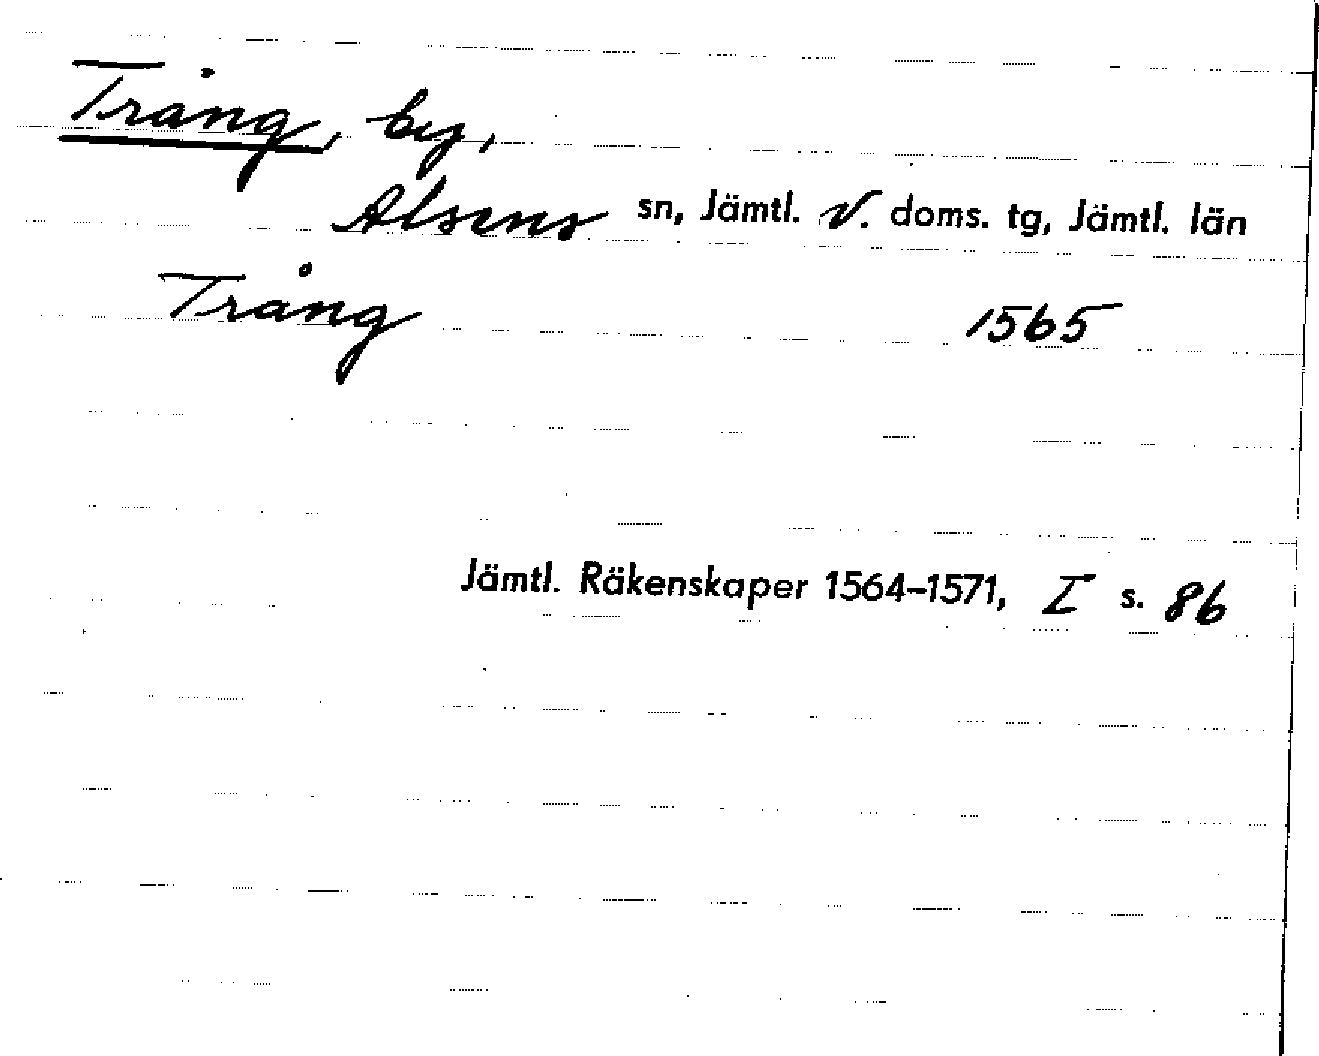 Trång, by,
Alsens sn, Jämtl. V. doms. tg, Jämtl. län
Trång 1565
Jämtl. Räkenskaper 1564-1571, I s. 86